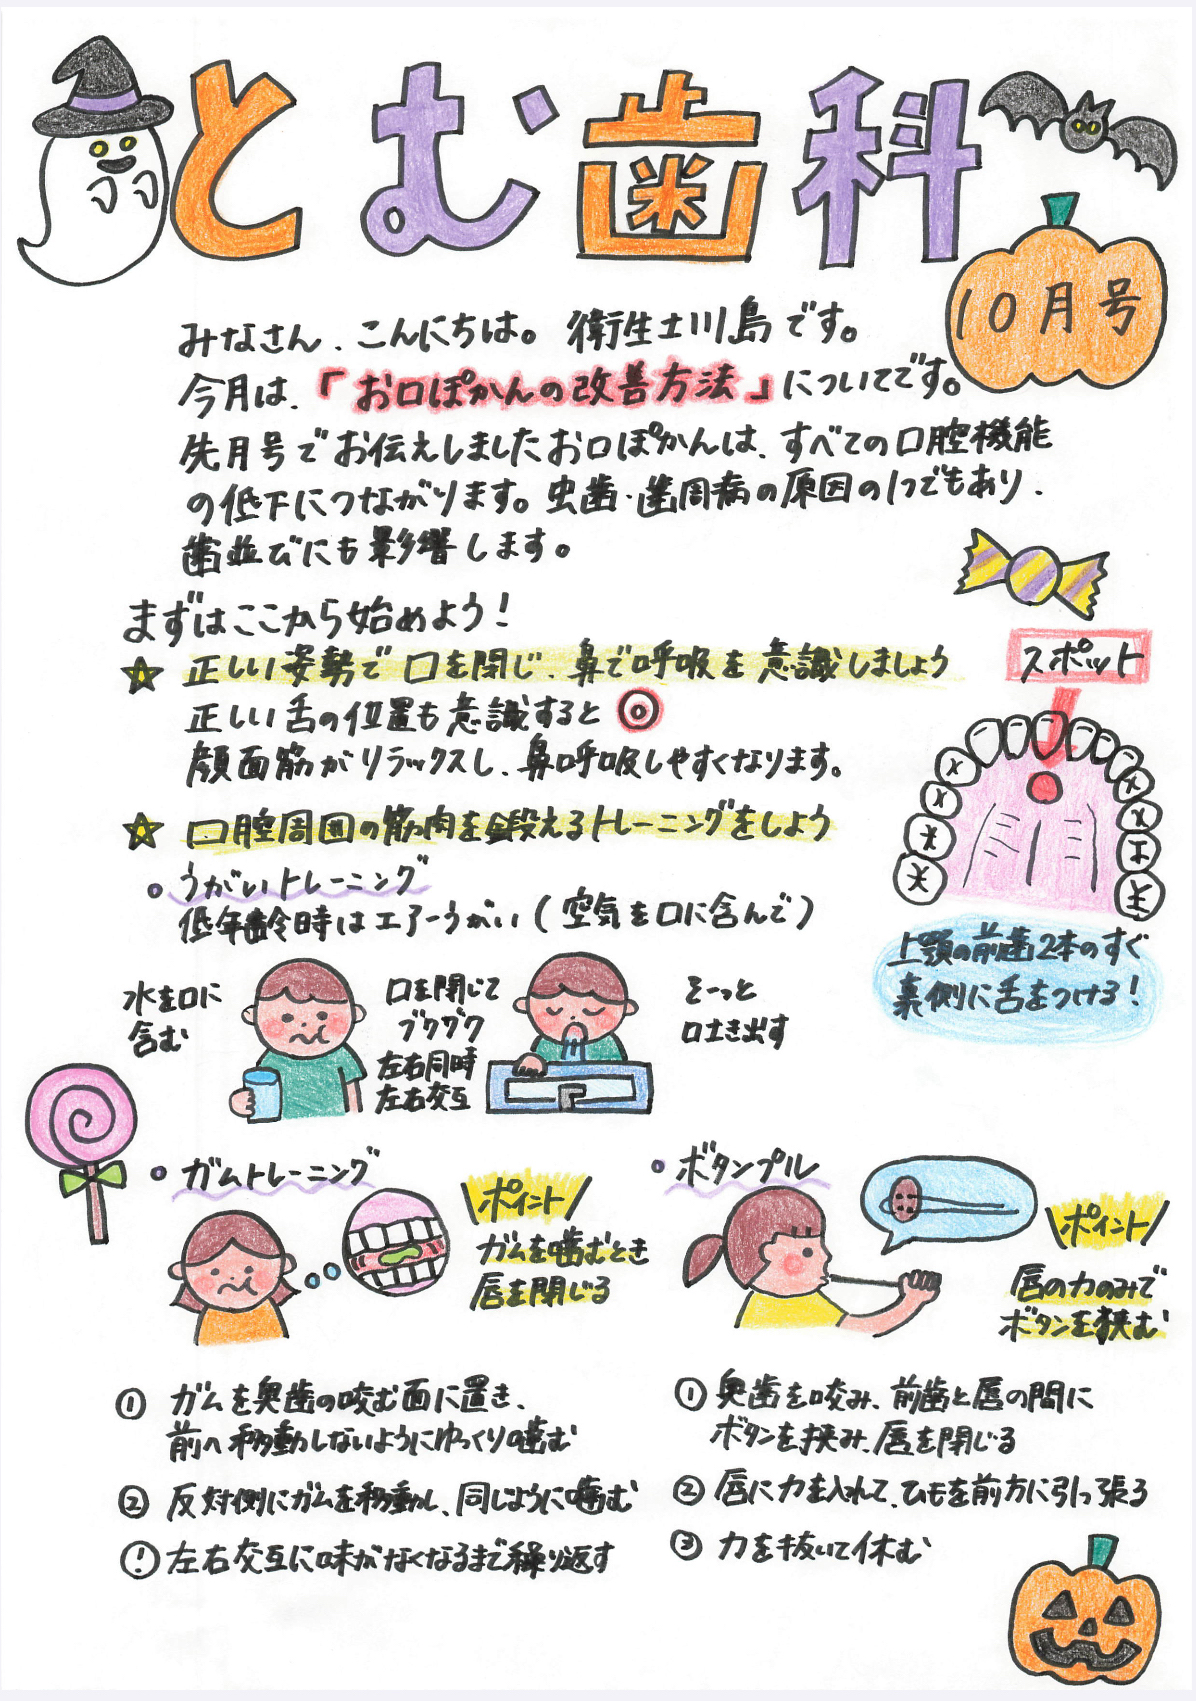 とむ歯科
10月号
みなさん、こんにちは。衛生士川島です。
今月は、「お口ぽかんの改善方法」についてです。
先月号でお伝えしましたお口ぽかんは、すべての口腔機能
の低下につながります。虫歯・歯周病の原因の1つでもあり、
歯並びにも影響します。
まずはここから始めよう!
☆ 正しい姿勢で口を閉じ、鼻で呼吸を意識しましょう
正しい舌の位置も意識すると◎
顔面筋がリラックスし、鼻呼吸しやすくなります。
スポット
上顎の前歯2本のすぐ
裏側に舌をつける!
☆ 口腔周囲の筋肉を鍛えるトレーニングをしよう
○ うがいトレーニング
低年齢時はエアーうがい(空気を口に含んで)
水を口に
含む
口を閉じて
ブクブク
左右同時
左右交互
そーっと
口土き出す
○ ガムトレーニング
\ポイント/
ガムを噛むとき
唇を閉じる
① ガムを奥歯の咬む面に置き、
前へ移動しないようにゆっくり噛む
② 反対側にガムを移動し、同じように噛む
! 左右交互に味がなくなるまで繰り返す
○ ボタンプル
\ポイント/
唇の力のみで
ボタンを挟む
① 奥歯を咬み、前歯と唇の間に
ボタンを挟み、唇を閉じる
② 唇に力を入れて、ひもを前方に引っ張る
③ 力を抜いて休む